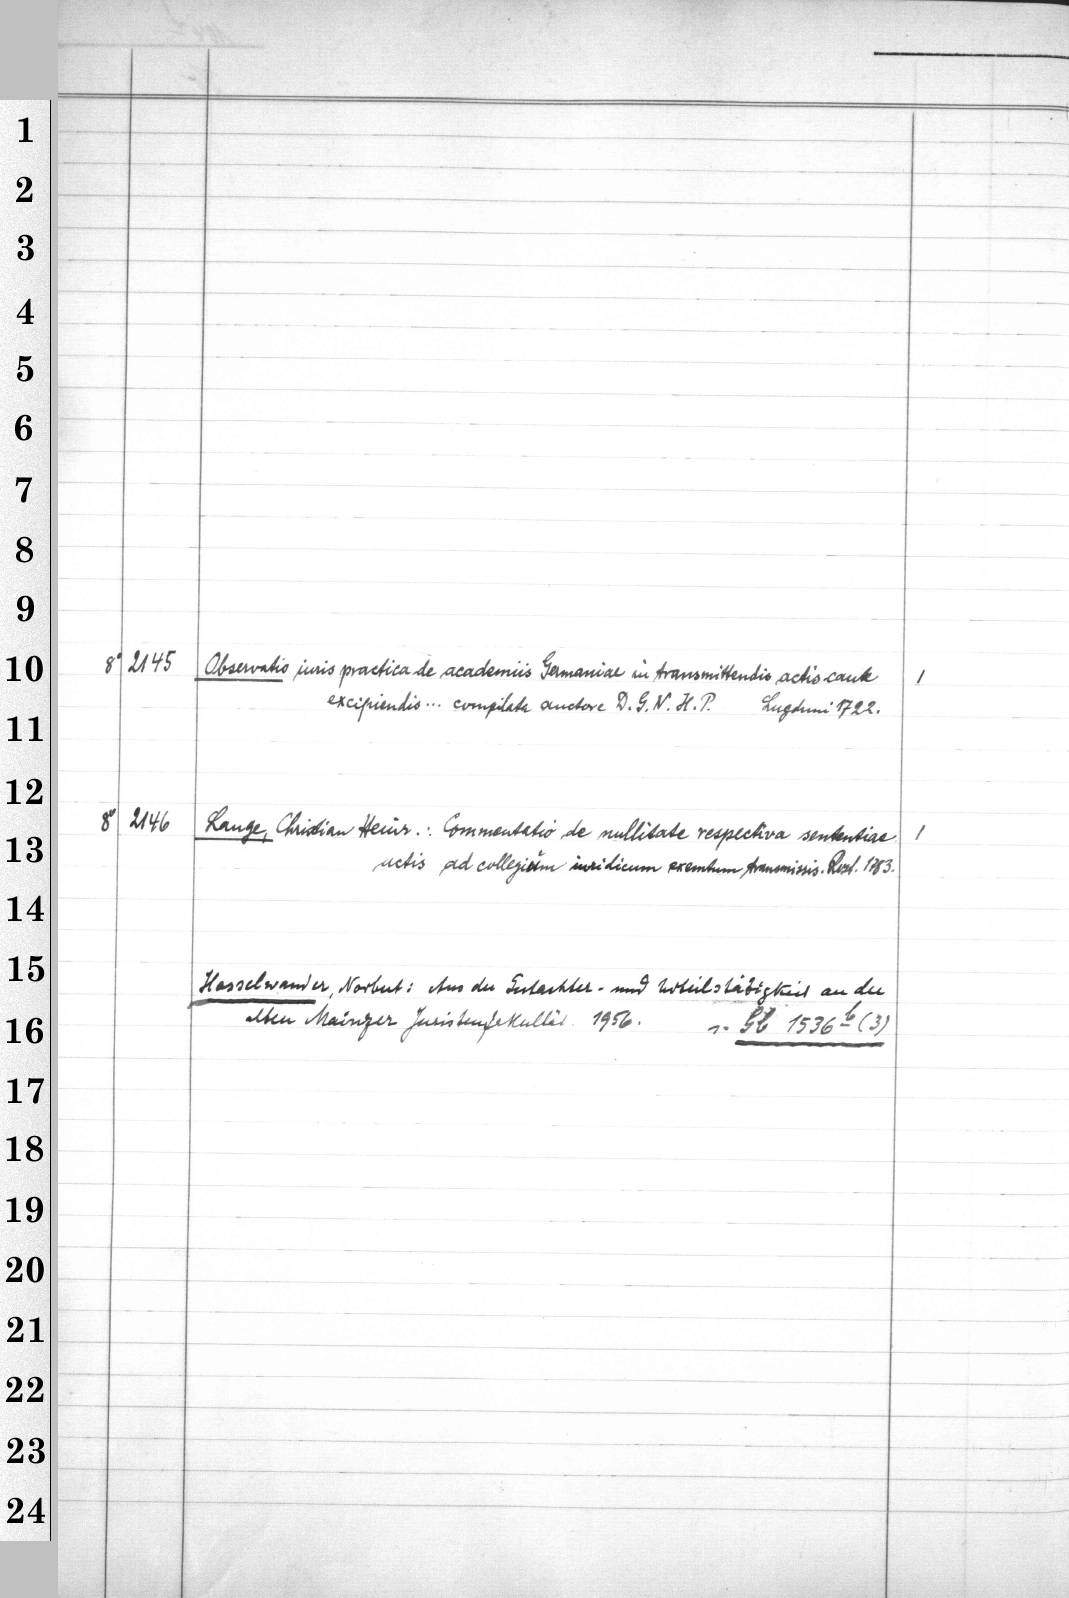 1
2
3
4
5
6
7
8
9
10
11
12
13
14
15
16
17
18
19
20
21
22
23
24
8° 2145 Observatio iuris practica de academiis Germaniae in transmittendis actis caute 1
excipiendis ... compilata auctore D. G. N. H. P. Lugduni 1722.
8° 2146 Lange, Christian Heinr.: Commentatio de nullitate respectiva sententiae 1
actis ad collegium iuridicum exemtum transmissis. Rost. 1783.
Hasselwander, Norbert: Aus der Gutachter- und Urteilstätigkeit an der
alten Mainzer Juristenfakultät. 1956. 1536 b (3)